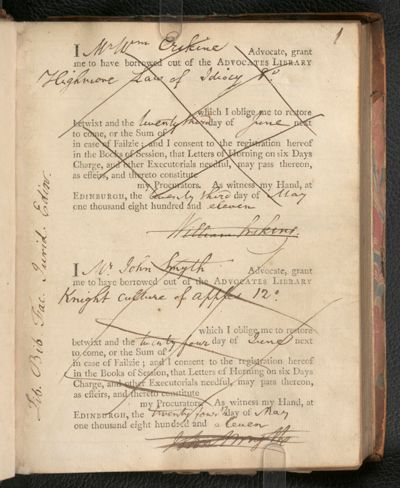 1
I Mr Wm Erskine Advocate, grant
me to have borrowed out of the ADVOCATES LIBRARY
Highmore Law of Idiocy 8o.
which I oblige me to restore
betwixt and the twenty third day of June next
to come, or the Sum of
in case of Failzie; and I consent to the registration hereof
in the Books of Session, that Letters of Horning on six Days
Charge, and other Executorials needful, may pass thereon,
as effeirs, and thereto constitute
my Procurators. As witness my Hand, at
EDINBURGH, the twenty third day of May
one thousand eight hundred and eleven
William Erskine.
I Mr. John Smyth Advocate, grant
me to have borrowed out of the ADVOCATES LIBRARY
Knight culture of apples 12o.
which I oblige me to restore
betwixt and the twenty four day of June next
to come, or the Sum of
in case of Failzie; and I consent to the registration hereof
in the Books of Session, that Letters of Horning on six Days
Charge, and other Executorials needful, may pass thereon,
as effeirs, and thereto constitute
my Procurators. As witness my Hand, at
EDINBURGH, the twenty four day of May
one thousand eight hundred and eleven
John Smyth
Lib. Bib. Fac. Jurid. Edinr.